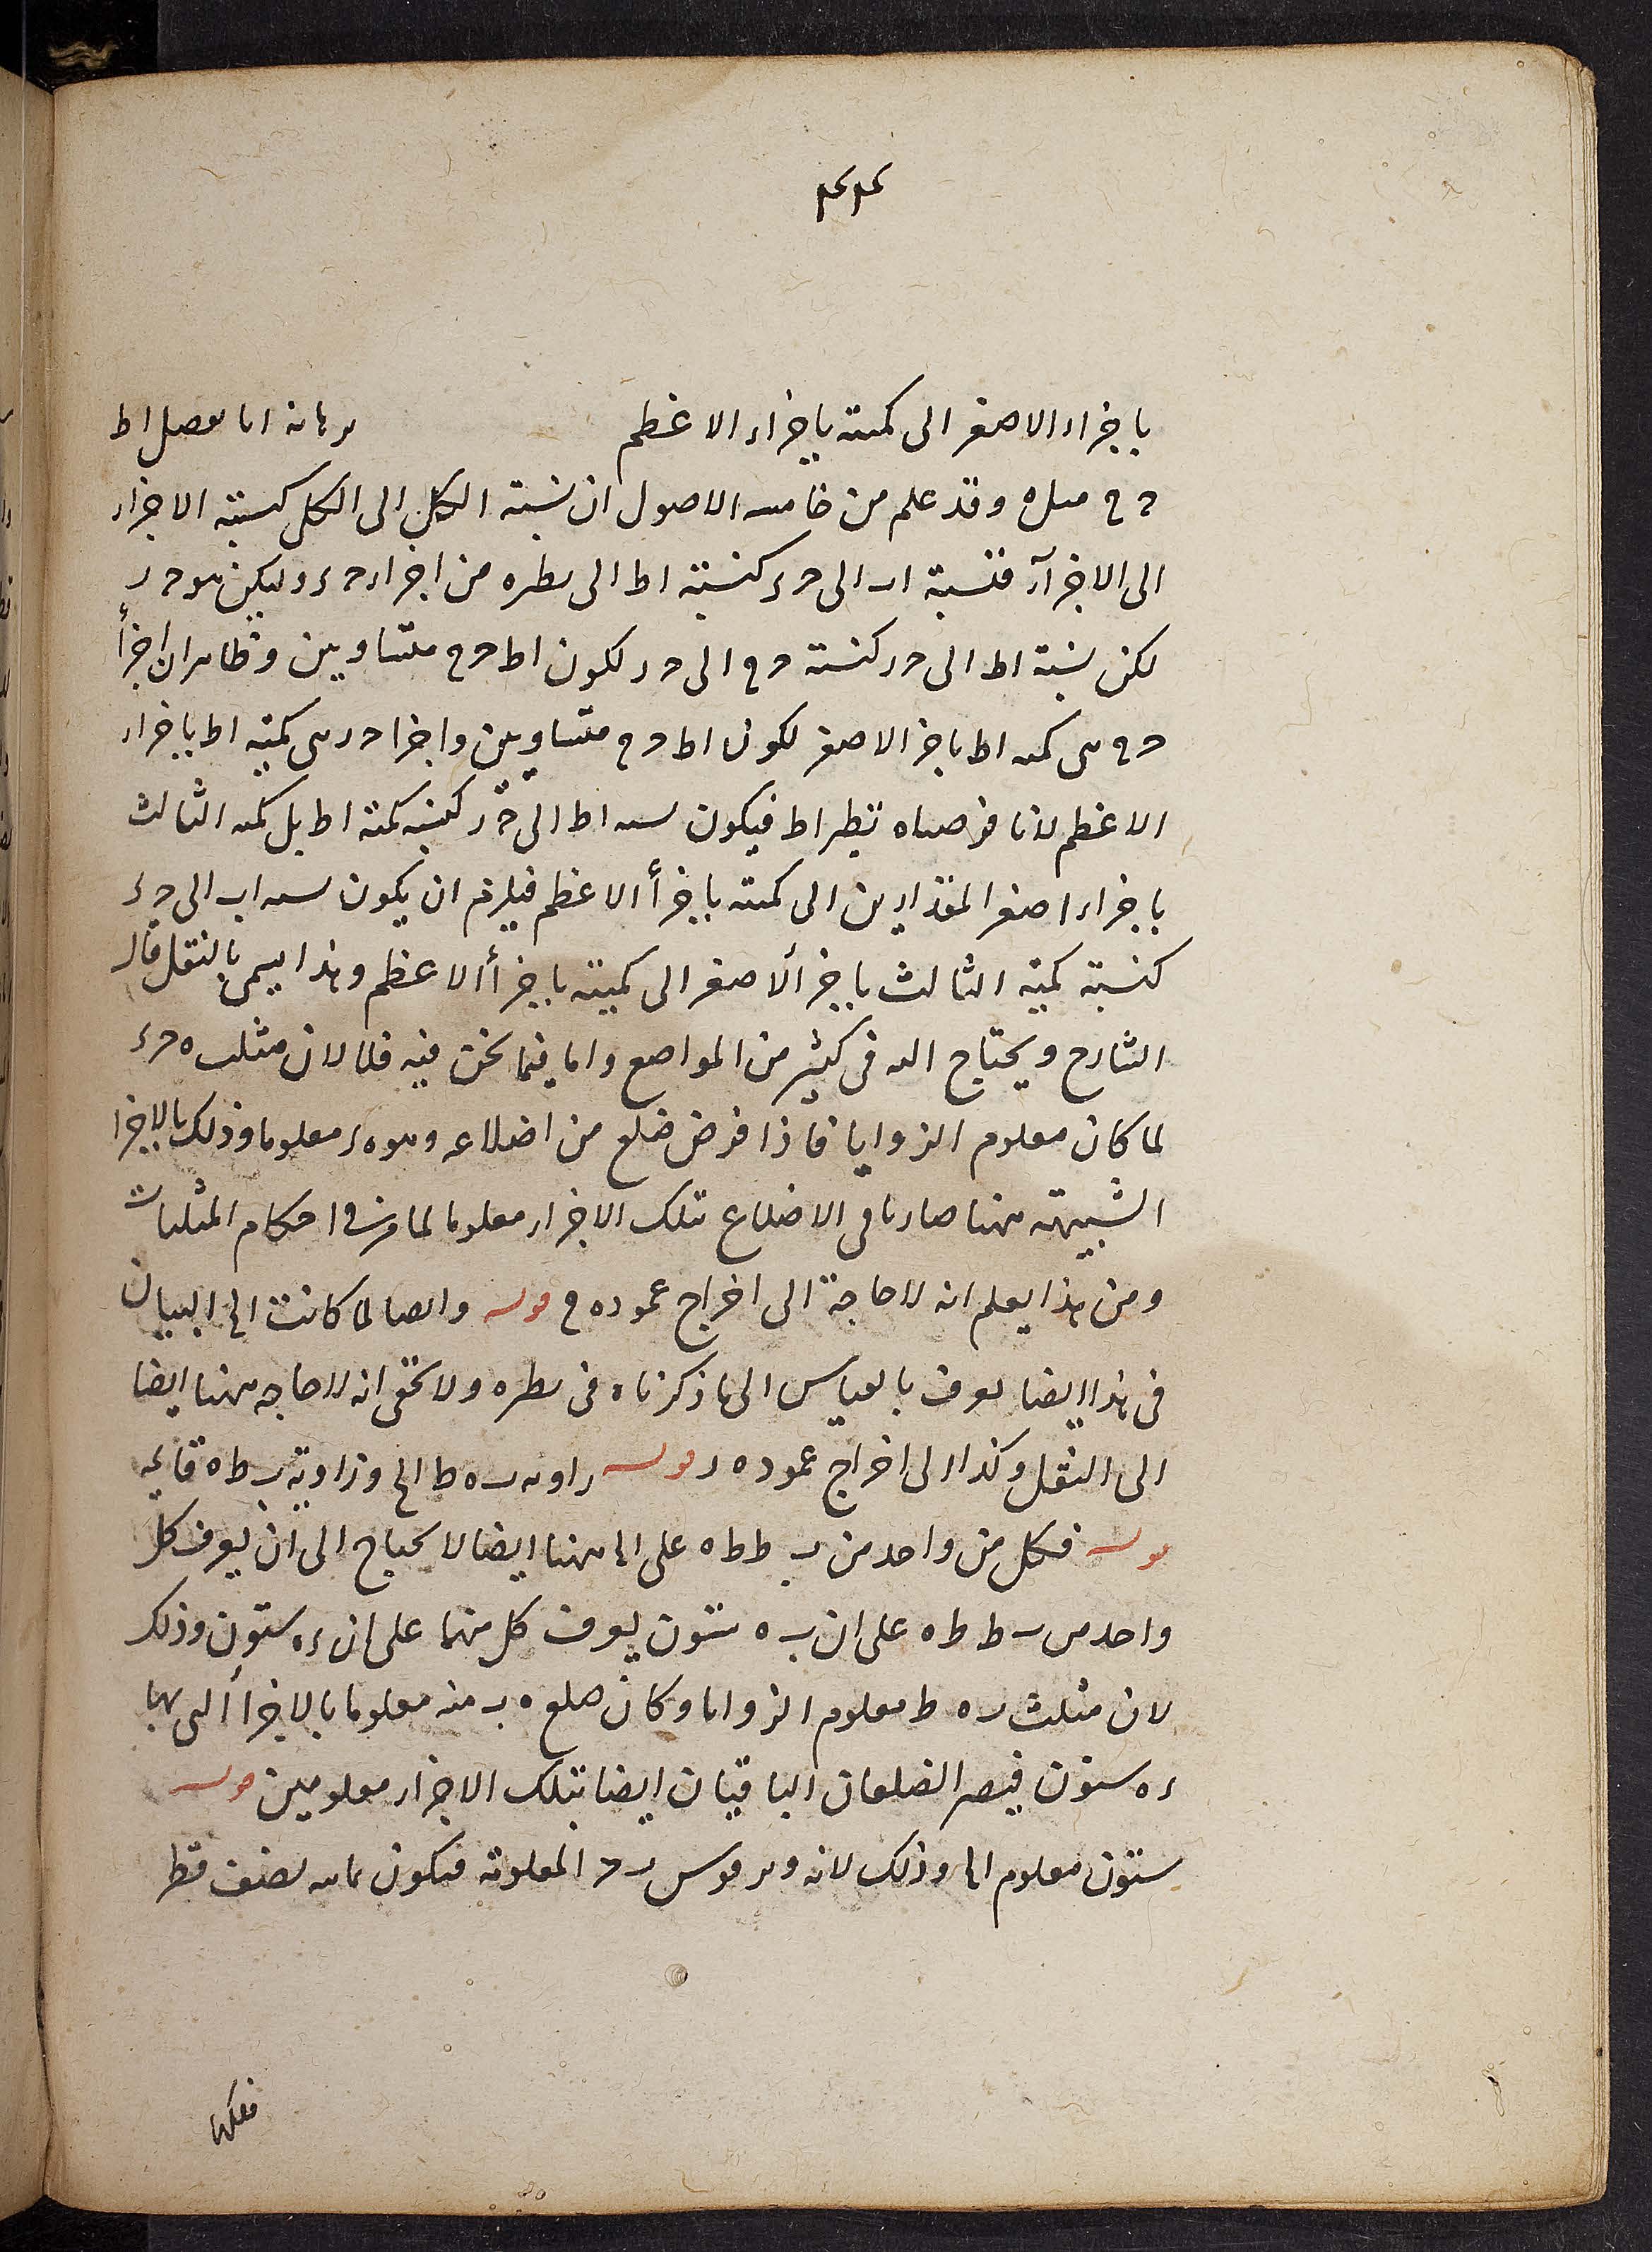 ۴۴
باجزاء الاصغر الى كميته باجزاء الاعظم برهانه انا نفصل اط
ح ح مثله وقد علم من خامسه الاصول ان نسبة الكل الى الكل كنسبة الاجزاء
الى الاجزاء فنسبة اب الى ح ء كنسبة اط الى نظيره من اجزاء ح ء وليكن هو ح ر
لكن نسبة اط الى ح ر كنسبة ح ح الى ح ر لكون اط ح ح متساويين وظاهر ان اجزأ
ح ح هى كميه اط باجزا الاصغر لكون اط ح ح متساويين واجزا ح ر هى كميته اط باجزاء
الاعظم لانا فرضناه نظير اط فيكون نسبه اط الى ح ر كنسبه كميه اط بل كميه الثالث
باجزاء اصغر المقدارين الى كميته باجزأ الاعظم فيلزم ان يكون نسبه اب الى ح ء
كنسبة كمية الثالث باجزأ الاصغر الى كميته باجزأ الاعظم وهذا يسمى بالنقل قال
الشارح ويحتاج اليه فى كثير من المواضع واما فيما نحن فيه فلا لان مثلث ه ح ء
لما كان معلوم الزوايا فاذا فرض ضلع من اضلاعه وهو ه ء معلوما وذلك بالاجزا
الشبيهة ههنا صار باقى الاضلاع بتلك الاجزاء معلوما لما مر فى احكام المثلثات
ومن هذا يعلم انه لا حاجة الى اخراج عمود ه ح قوله وايضا لما كانت الخ البيان
فى هذا ايضا يعرف بالقياس الى ما ذكرناه فى نظيره ولا يخفى انه لا حاجه ههنا ايضا
الى النقل وكذا الى اخراج عمود ه ر قوله زاويه ب ه ط الخ وزاوية ب ط ه قائمه
قوله فكل من واحد من ب ط ط ه على الخ ههنا ايضا لا يحتاج الى ان يعرف كل
واحد من ب ط ط ه على ان ب ه ستون ليعرف كل منهما على ان ء ه ستون وذلك
لان مثلث ب ه ط معلوم الزوايا وكان ضلع ه ب منه معلوما بالاجزأ التى بها
ء ه ستون فيصر الضلعان الباقيان ايضا بتلك الاجزاء معلومين قوله
ستون معلوم الخ وذلك لانه وتر قوس ب ح المعلومة فيكون بما به نصف قطر